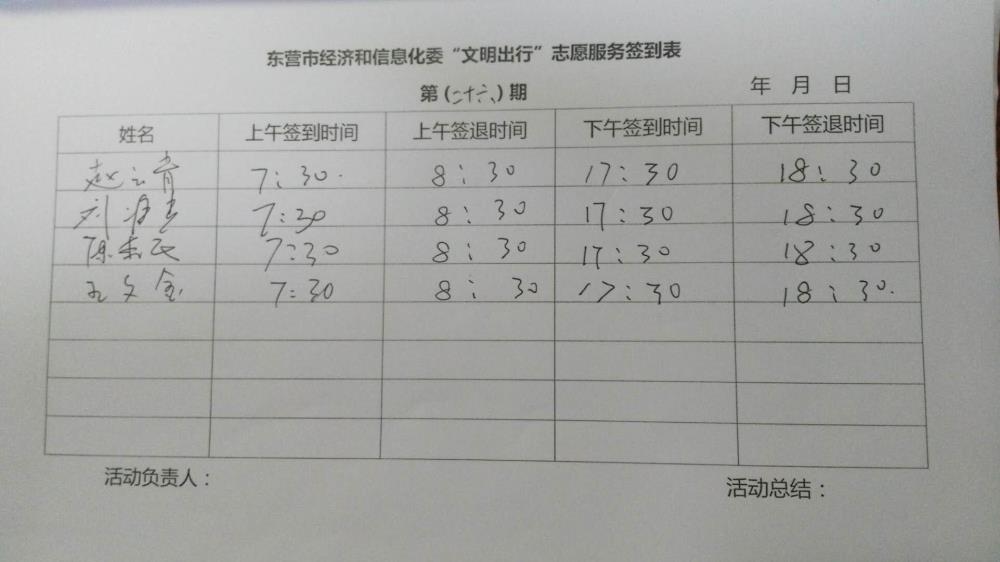 东营市经济和信息化委“文明出行”志愿服务签到表
第(二十六)期 年 月 日
姓名 上午签到时间 上午签退时间 下午签到时间 下午签退时间
赵云青 7:30. 8:30 17:30 18:30
刘 7:30 8:30 17:30 18:30
陈 民 7:30 8:30 17:30 18:30
文金 7:30 8:30 17:30 18:30.
活动负责人:
活动总结: